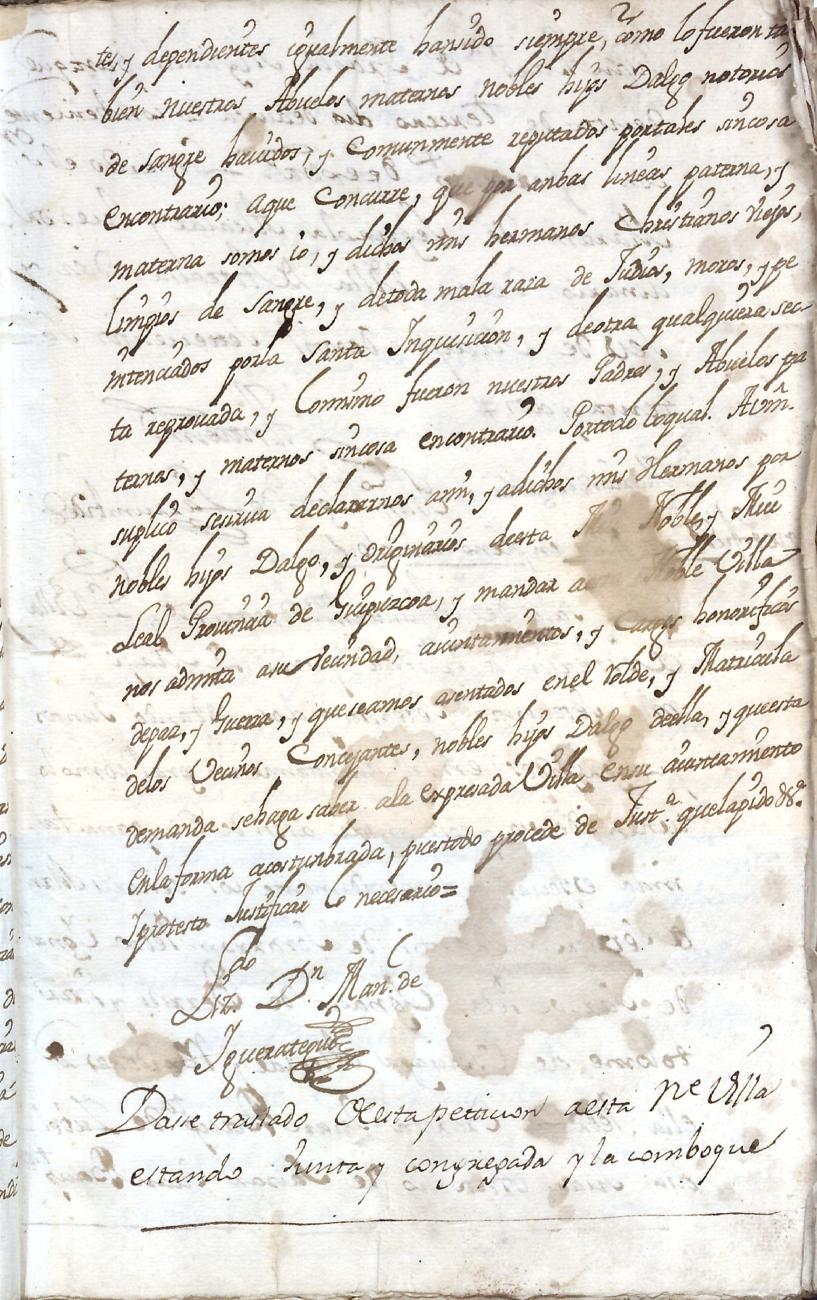 tes, y dependientes igualmente hansido siempre, como lo fueron ta
bien nuestros Abuelos maternos nobles hijos Dalgo notorios
de sangre havidos, y Comunmente reputados portales sincosa
encontrario; aque Concurre, que por anbas lineas paterna, y
materna somos io, y dichos mis hermanos Christianos viejos,
limpios de sangre, y detoda mala raza de Judios, moros, y pe
nitenciados porla Santa Inquisicion, y deotra qualquiera sec
ta reprovada, y lo mismo fueron nuestros Padres, y Abuelos pa
ternos, y maternos sincosa encontrario. Portodo loqual. A vm.
suplico sesirva declararnos ami, y adichos mis Hermanos por
nobles hijos Dalgo, y originarios deesta M. Noble, y Mui
Leal Provincia de Guipuzcoa, y mandar a Noble Villa
nos admita asu vecindad, aiuntamientos, y Cargos honorificos
depaz, y Guerra, y queseamos asentados enel rolde, y Matricula
delos Vecinos Concejantes, nobles hijos Dalgo deella, y queesta
demanda sehaga saber ala expresada Villa ensu aiuntamiento
enlaforma acostunbrada, puestodo procede de Just.ª quelapido &.ª
Iprotesto Justificar lo necesario=
Lizdo. Dn. Man. de
Iguerategui
Dasse traslado deesta peticion aesta Ne Villa
estando Junta y congregada y la comboque